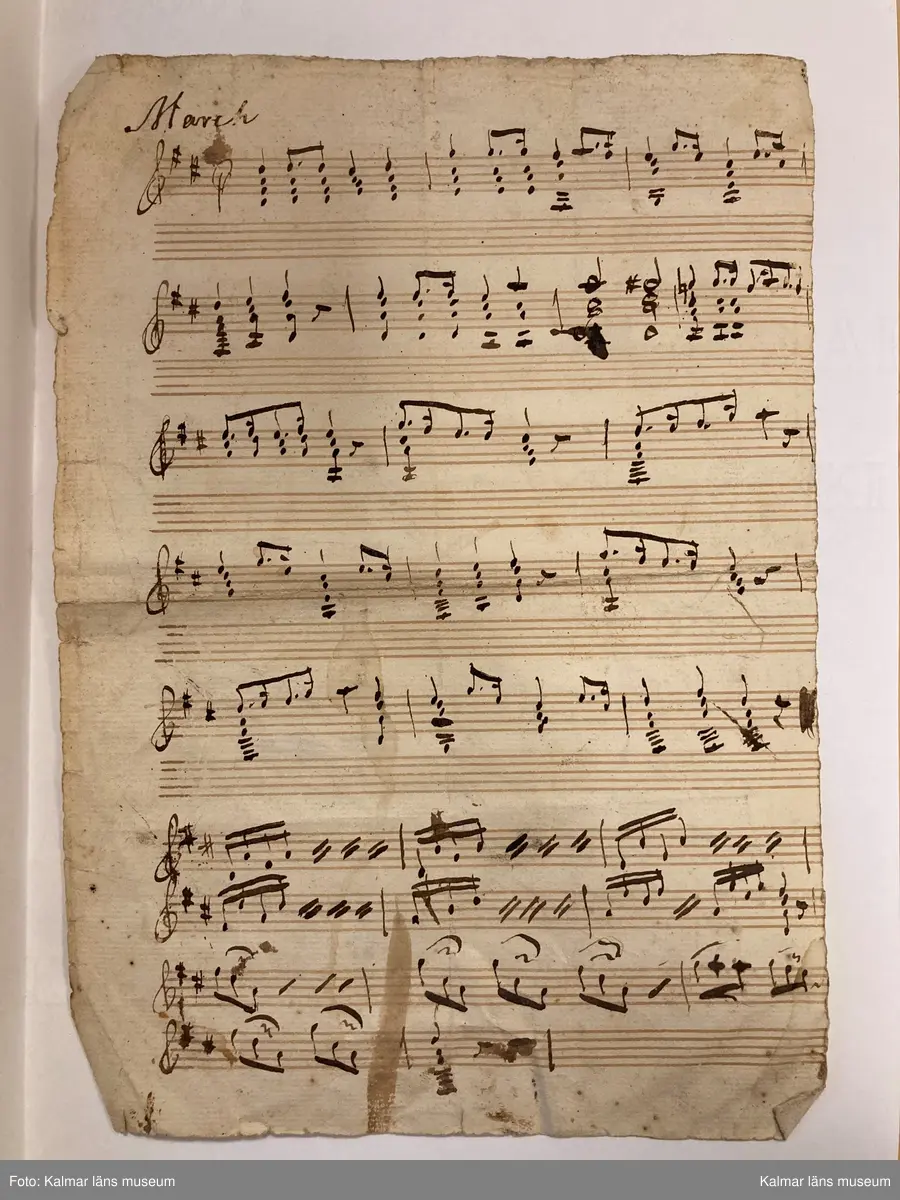 March
Foto: Kalmar läns museum
Kalmar läns museum